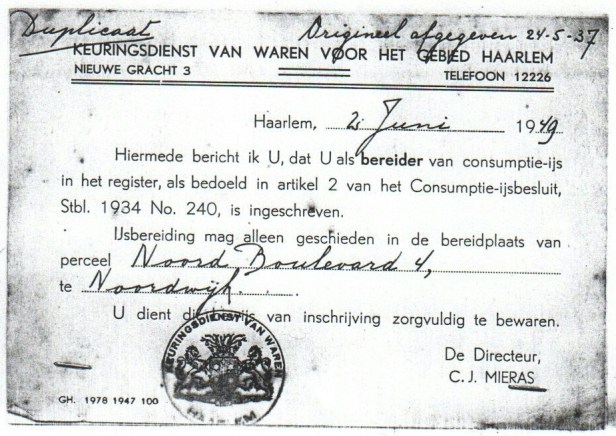 Duplicaat Origineel afgegeven 24-5-37
KEURINGSDIENST VAN WAREN VOOR HET GEBIED HAARLEM
NIEUWE GRACHT 3 TELEFOON 12226
Haarlem, 2 Juni 1949
Hiermede bericht ik U, dat U als bereider van consumptie-ijs
in het register, als bedoeld in artikel 2 van het Consumptie-ijsbesluit,
Stbl. 1934 No. 240, is ingeschreven.
IJsbereiding mag alleen geschieden in de bereidplaats van
perceel Noord Boulevard 4,
te Noordwijk.
U dient dit bewijs van inschrijving zorgvuldig te bewaren.
KEURINGSDIENST VAN WAREN
HAARLEM
De Directeur,
C. J. MIERAS
GH. 1978 1947 100